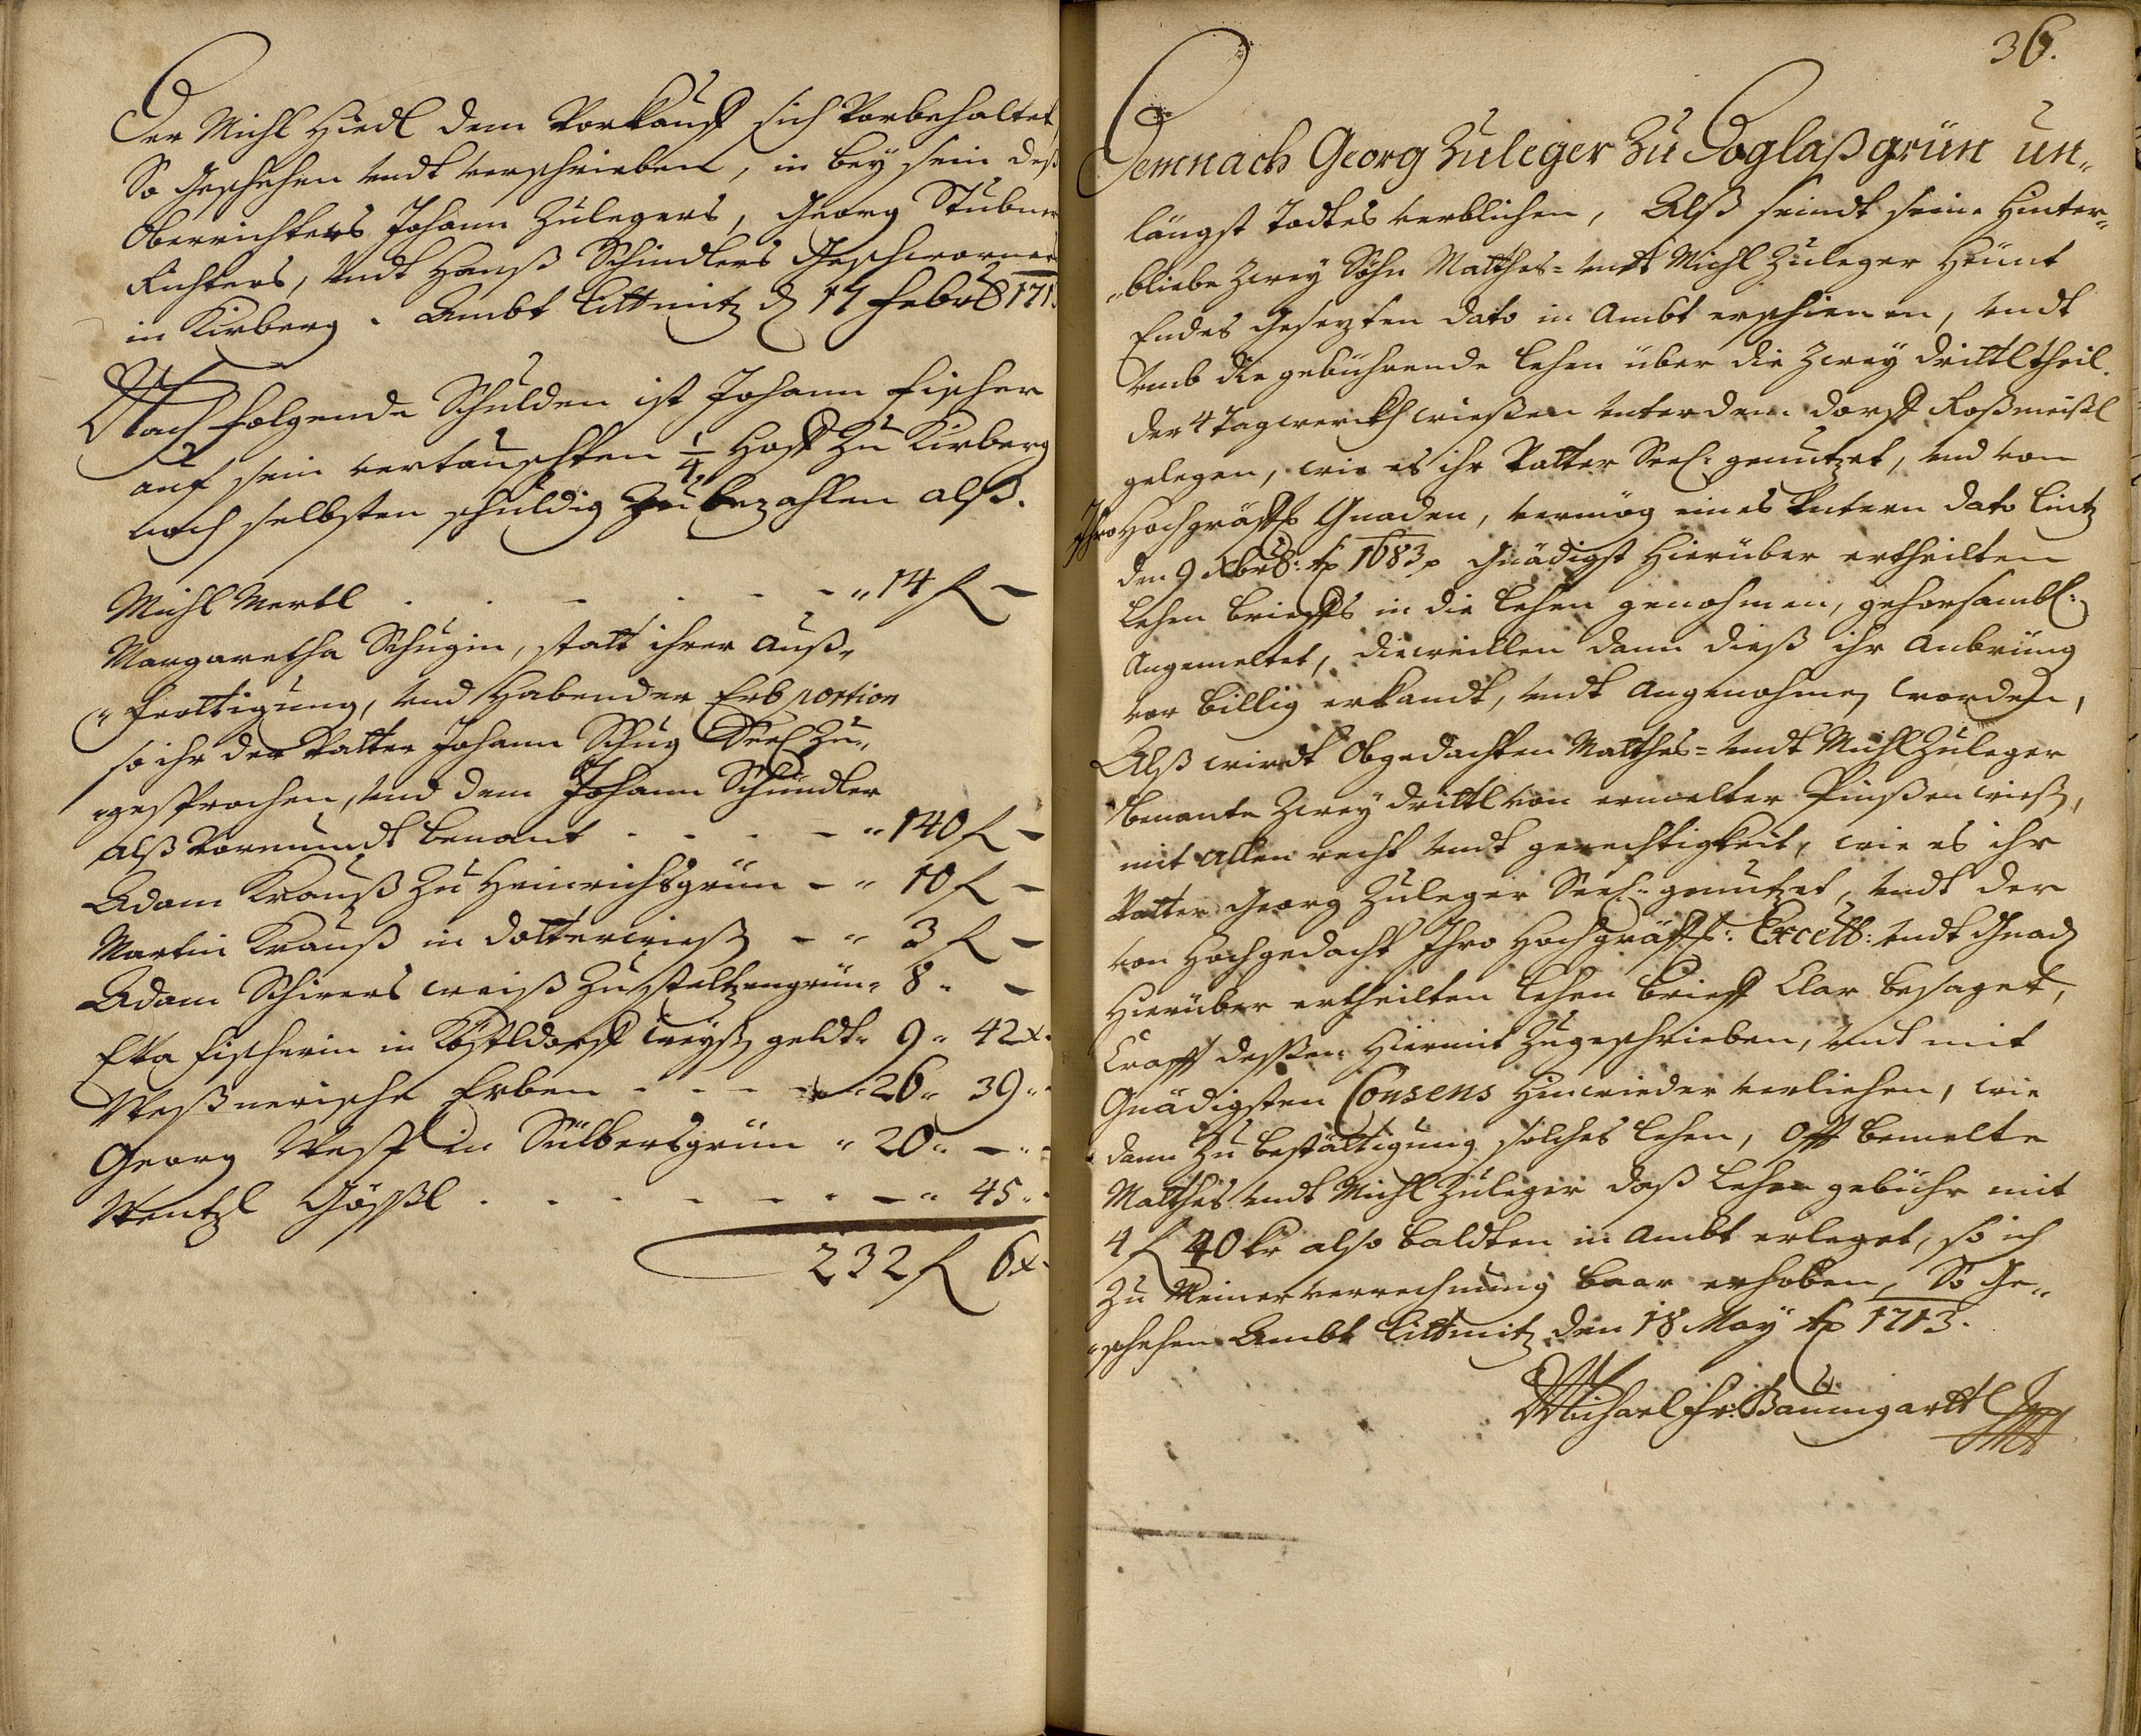 Der Michl Hiedl dem Vorkauff sich Vorbehaltet,
So Geschehen undt verschrieben, in bey sein deß
Oberrichters Johann Zulegers, Georg Stubner
Richters, undt Hanß Schindlers Geschworner
in Kirberg. Ambt Littmitz d 14 Febr: 171
Nach folgende Schulden ist Johann Fischer
auf sein vertauschten 1/4 Hoff Zu Kirberg
noch selbsten schuldig Zu bezahlen alß.
Michl Mertl . . - . - - " 14 f -
Margaretha Schugin, statt ihrer Auß„
„fertigung, und Habender Erb portion
so ihr der Vatter Johann Schug Seel: Zu„
„gesprochen, und dem Johann Schindler
alß Vormundt benant - - - - " 140 f -
Adam Krauß Zu Heinrichsgrün - " 10 f -
Martin Krauß in Dotterwieß - " 3 f -
Adam Schirers weiß Zu Stelzengrün " 8 " -
Eva Fischerin in Köstldorff Weyß geldt " 9 " 42 x
Meßnerische Erben - - - - " 26 " 39 "
Georg Hess in Silbersgrün " 20 " - "
Wentzl Gößl . . . - - . - " 45 "
232 f 6 x
36.
Demnach Georg Zuleger Zu Doglaßgrün un„
längst Todtes verblichen, Alß seindt seine Hinter„
„bliebe Zwey Söhn Matthes= undt Michl Zuleger Heünt
Endes Gesezten dato in Ambt erschienen, undt
umb die gebührende Lehen über die Zwey drittltheil
der 4 Tagwerckh wießen unter dem Dorff Roßmeißl
gelegen, wie es ihr Vatter Seel: genutzet, und von
Ihro Hochgräffl Gnaden, vermög eines Untern dato Lintz
den 9 Xbris: Ao 1683 Gnädigst Hierüber ertheilten
Lehen brieffs in die Lehen genohmen, gehorsambl:
Angemeltet, dieweillen dann dieß ihr Anbring
vor billig erkandt, undt Angenohmen worden,
Alß wirdt Obgedachten Matthes= undt Michl Zuleger
benante Zwey drittl von ermelter Pinßenwieß,
mit allen recht undt gerechtigkeit, wie es ihr
Vatter Georg Zuleger Seel: genutzet, undt der
von Hochgedacht Ihro Hochgräffl: Excell: undt Gnad
Hierüber ertheilten Lehen brieff Clar besaget,
Crafft dessen Hiermit Zugeschrieben, und mit
Gnädigsten Consens Hinwieder verliehen, wie
dann Zu bestättigung solches Lehen, Offt bemelte
Matthes undt Michl Zuleger daß Lehen gebühr mit
4 f 40 kr also baldten in Ambt erleget, so ich
Zu Meiner verrechnung baar erhoben, So Ge„
„schehen Ambt Littmitz den 18 May Ao 1713.
Michael Fr: Baumgartl